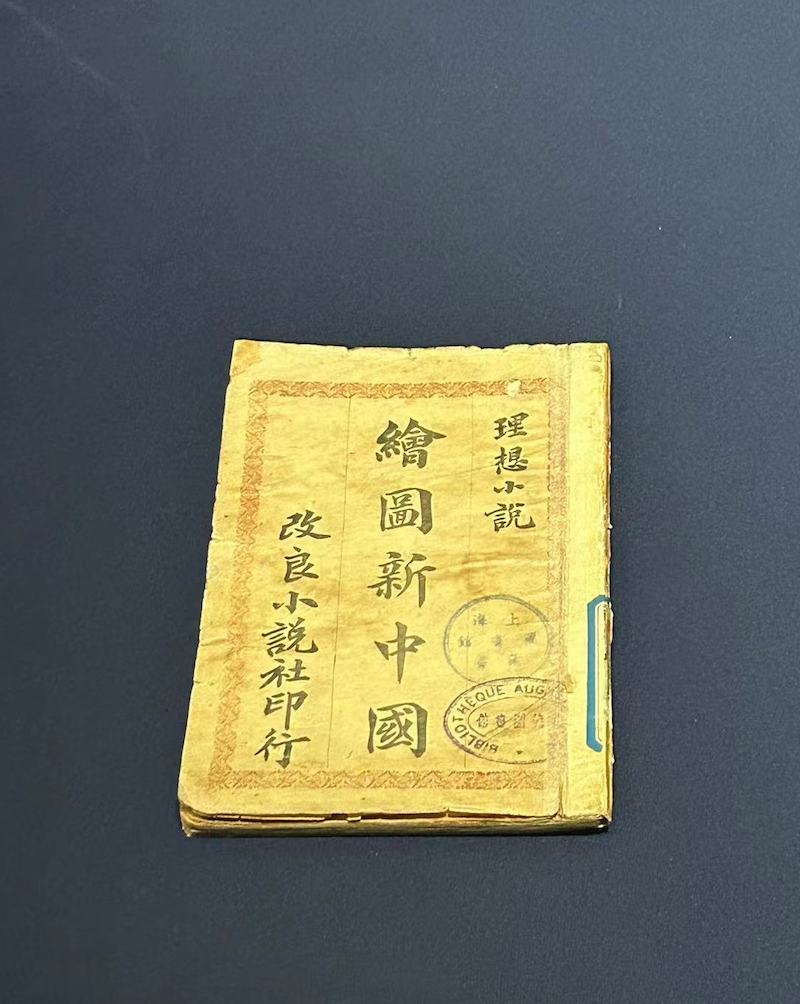 理想小說
繪圖新中國
改良小說社印行
上海
BIBLIOTHÈQUE AUG